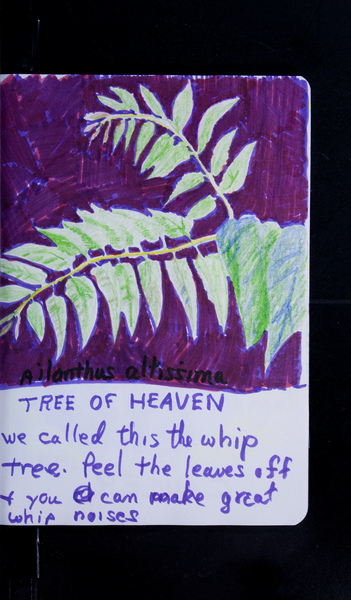 Ailanthus altissima
TREE OF HEAVEN
we called this the whip
tree. feel the leaves off
+ you can make great
whip noises